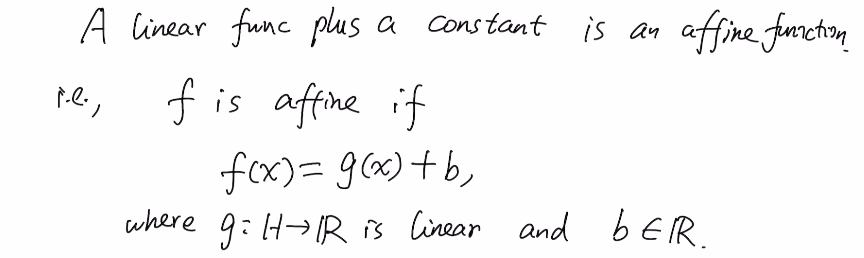 A linear func plus a constant is an affine function.
i.e., f is affine if
f(x) = g(x) + b,
where g: H→ℝ is linear and b∈ℝ.